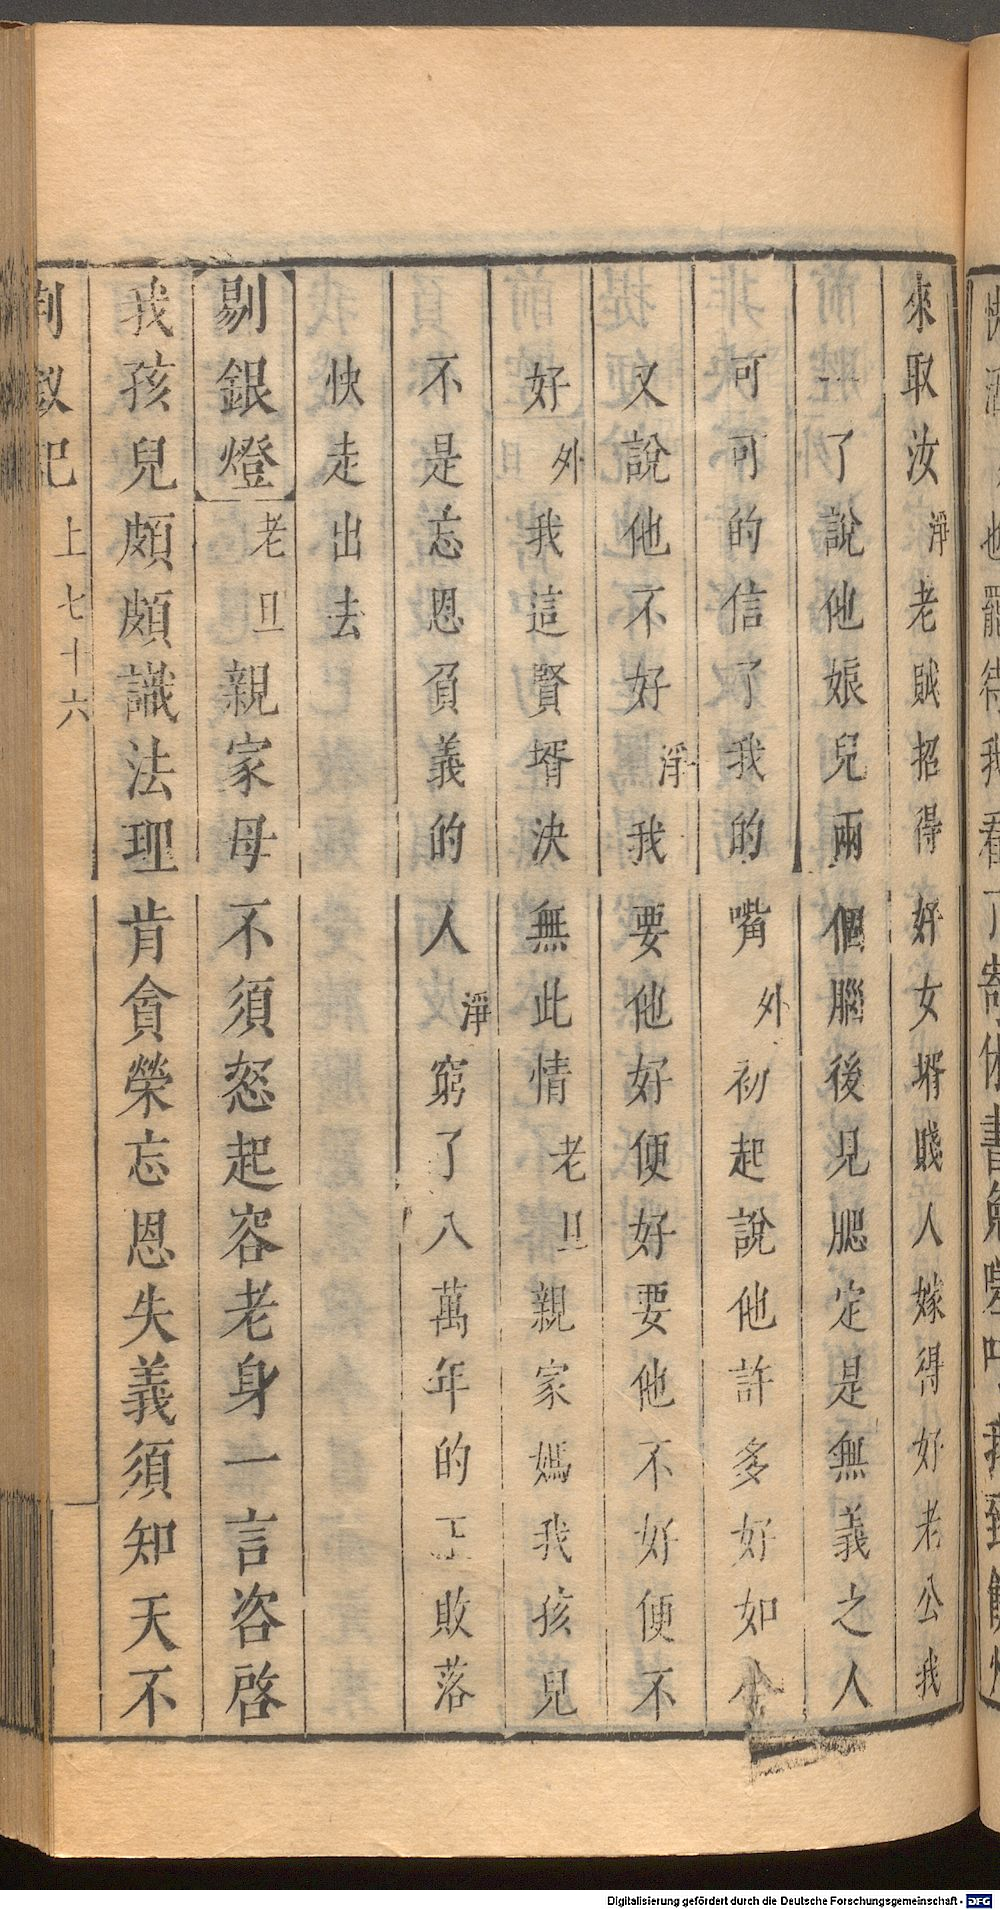 來取汝淨老賊招得好女壻賤人嫁得好老公我
一了說他娘兒兩個腦後見腮定是無義之人
可可的信了我的嘴外初起說他許多好如今
又說他不好淨我要他好便好要他不好便不
好外我這賢壻決無此情老旦親家媽我孩兒
不是忘恩負義的人淨窮了八萬年的王敗落
快走出去
剔銀燈老旦親家母不須怒起容老身一言咨啓
我孩兒頗頗識法理肯貪榮忘恩失義須知天不
荆釵記 上 七十六
Digitalisierung gefördert durch die Deutsche Forschungsgemeinschaft - DFG